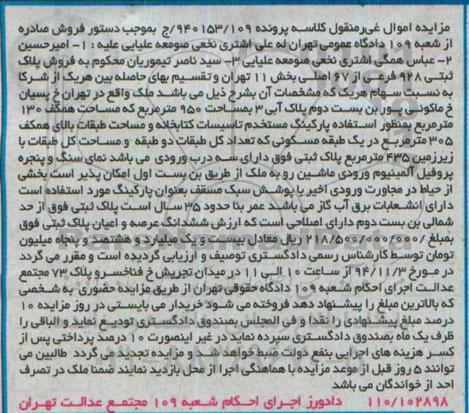 مزایده اموال غیرمنقول کلاسه پرونده ۹۴۰۱۵۳/۱۰۹/ج بموجب دستور فروش صادره
از شعبه ۱۰۹ دادگاه عمومی تهران له علی اشتری نخعی صومعه علیایی علیه : ۱- امیرحسین
۲- عباس همگی اشتری نخعی صومعه علیایی ۳- سید ناصر تیموریان محکوم به فروش پلاک
ثبتی ۹۲۸ فرعی از ۶۷ اصلی بخش ۱۱ تهران و تقسیم بهای حاصله بین هریک از شرکا
به نسبت سهام هریک که مشخصات آن بشرح ذیل می باشد ملک واقع در تهران خ پسیان
خ ماکویی پور بن بست دوم پلاک آبی ۳ بمساحت ۹۵۰ مترمربع که مساحت همکف ۱۳۰
مترمربع بمنظور استفاده پارکینگ مستخدم تاسیسات کتابخانه و مساحت طبقات بالای همکف
۳۰۵ مترمربع در یک طبقه مسکونی که تعداد کل طبقات دو طبقه و مساحت کل طبقات با
زیرزمین ۴۳۵ مترمربع پلاک ثبتی فوق دارای سه درب ورودی می باشد نمای سنگ و پنجره
پروفیل آلمینیوم ورودی ماشین رو به ملک از طریق بن بست اول امکان پذیر است بخشی
از حیاط در مجاورت ورودی اخیر با پوشش سبک مسقف بعنوان پارکینگ مورد استفاده است
دارای انشعابات برق آب گاز می باشد عمر بنا حدود ۳۵ سال است پلاک ثبتی فوق از حد
شمالی بن بست دوم دارای اصلاحی است که ارزش ششدانگ عرصه و اعیان پلاک ثبتی فوق
بمبلغ /۲۱۸/۵۰۰/۰۰۰/۰۰۰ ریال معادل بیست و یک میلیارد و هشتصد و پنجاه میلیون
تومان توسط کارشناس رسمی دادگستری توصیف و ارزیابی گردیده است و مقرر می گردد
در مورخ ۹۴/۱۱/۳ از ساعت ۱۰ الی ۱۱ در میدان تجریش خ فناخسرو پلاک ۷۳ مجتمع
عدالت اجرای احکام شعبه ۱۰۹ دادگاه حقوقی تهران از طریق مزایده حضوری به شخصی
که بالاترین مبلغ را پیشنهاد دهد فروخته می شود خریدار می بایستی در روز مزایده ۱۰
درصد مبلغ پیشنهادی را نقدا و فی المجلس بصندوق دادگستری تودیع نماید و الباقی را
ظرف یک ماه بصندوق دادگستری سپرده نماید در غیر اینصورت ۱۰ درصد پرداختی پس از
کسر هزینه های اجرایی بنفع دولت ضبط خواهد شد و مزایده تجدید می گردد طالبین می
توانند ۵ روز قبل از موعد مزایده با هماهنگی اجرا از محل بازدید نمایند ضمنا ملک در تصرف
احد از خواندگان می باشد
۱۱۰/۱۰۲۸۹۸ دادورز اجرای احکام شعبه ۱۰۹ مجتمع عدالت تهران